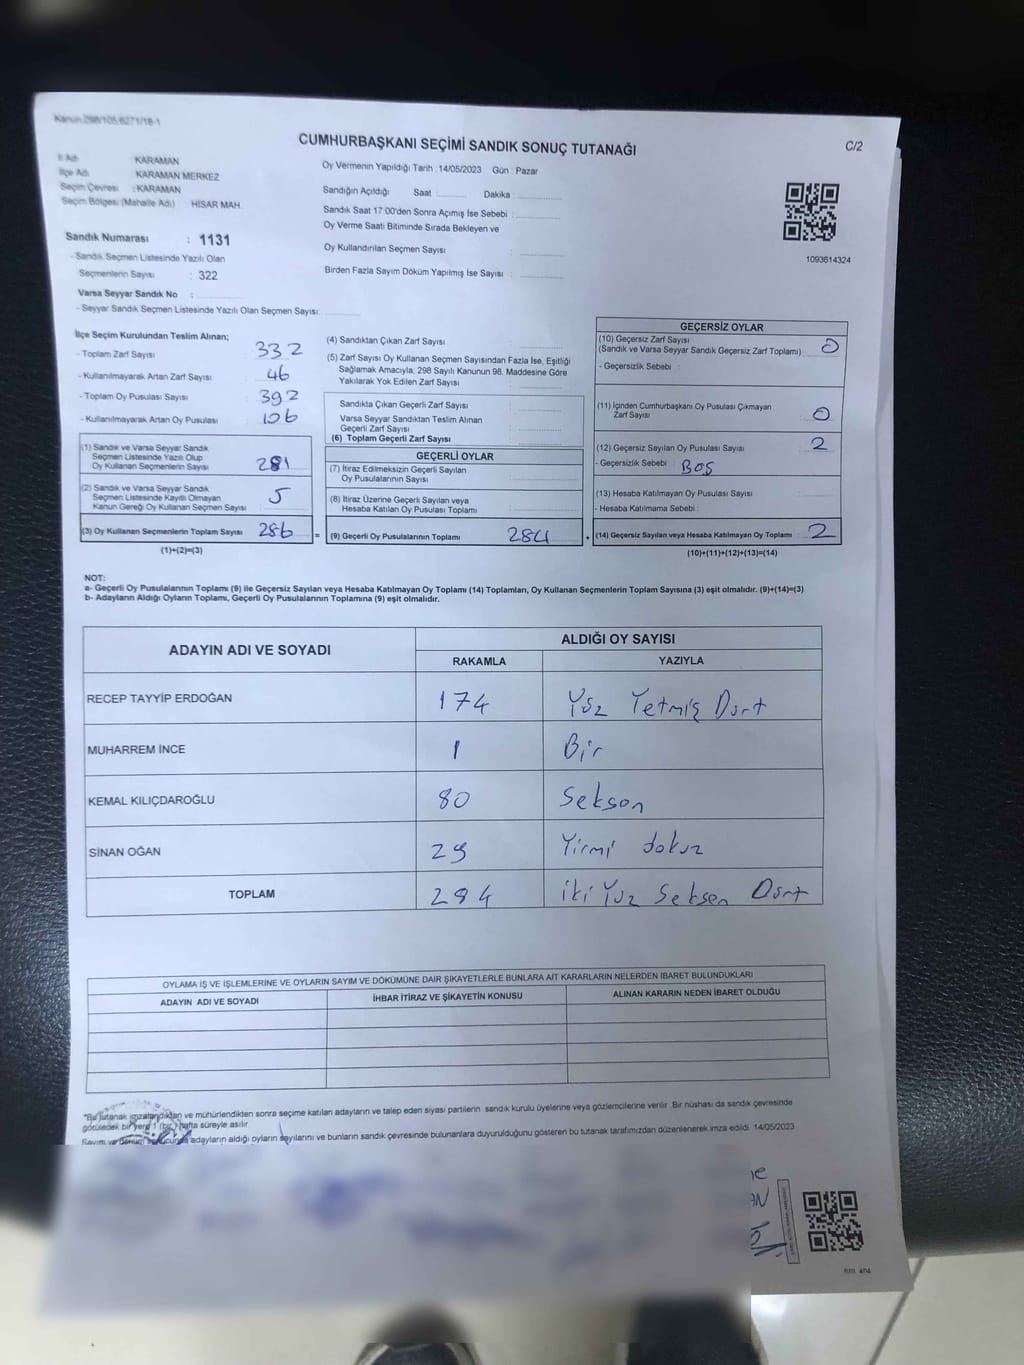 Kanun:298/105,6271/18-1
CUMHURBAŞKANI SEÇİMİ SANDIK SONUÇ TUTANAĞI
C/2
İl Adı : KARAMAN
İlçe Adı : KARAMAN MERKEZ
Seçim Çevresi : KARAMAN
Seçim Bölgesi (Mahalle Adı) : HİSAR MAH.
Sandık Numarası : 1131
- Sandık Seçmen Listesinde Yazılı Olan
Seçmenlerin Sayısı : 322
Varsa Seyyar Sandık No :
- Seyyar Sandık Seçmen Listesinde Yazılı Olan Seçmen Sayısı:
Oy Vermenin Yapıldığı Tarih :14/05/2023 Gün : Pazar
Sandığın Açıldığı Saat Dakika :
Sandık Saat 17:00'den Sonra Açımış İse Sebebi :
Oy Verme Saati Bitiminde Sırada Bekleyen ve
Oy Kullandırılan Seçmen Sayısı :
Birden Fazla Sayım Döküm Yapılmış İse Sayısı :
1093614324
İlçe Seçim Kurulundan Teslim Alınan;
- Toplam Zarf Sayısı : 332
- Kullanılmayarak Artan Zarf Sayısı : 46
- Toplam Oy Pusulası Sayısı : 392
- Kullanılmayarak Artan Oy Pusulası : 106
(1) Sandık ve Varsa Seyyar Sandık
Seçmen Listesinde Yazılı Olup
Oy Kullanan Seçmenlerin Sayısı : 281
(2) Sandık ve Varsa Seyyar Sandık
Seçmen Listesinde Kayıtlı Olmayan
Kanun Gereği Oy Kullanan Seçmen Sayısı : 5
(3) Oy Kullanan Seçmenlerin Toplam Sayısı 286
(1)+(2)=(3)
=
(4) Sandıktan Çıkan Zarf Sayısı :
(5) Zarf Sayısı Oy Kullanan Seçmen Sayısından Fazla İse, Eşitliği
Sağlamak Amacıyla, 298 Sayılı Kanunun 98. Maddesine Göre
Yakılarak Yok Edilen Zarf Sayısı :
Sandıkta Çıkan Geçerli Zarf Sayısı :
Varsa Seyyar Sandıktan Teslim Alınan
Geçerli Zarf Sayısı :
(6) Toplam Geçerli Zarf Sayısı :
GEÇERLİ OYLAR
(7) İtiraz Edilmeksizin Geçerli Sayılan
Oy Pusulalarının Sayısı :
(8) İtiraz Üzerine Geçerli Sayılan veya
Hesaba Katılan Oy Pusulası Toplamı :
(9) Geçerli Oy Pusulalarının Toplamı 284
+
GEÇERSİZ OYLAR
(10) Geçersiz Zarf Sayısı
(Sandık ve Varsa Seyyar Sandık Geçersiz Zarf Toplamı) : 0
- Geçersizlik Sebebi :
(11) İçinden Cumhurbaşkanı Oy Pusulası Çıkmayan
Zarf Sayısı : 0
(12) Geçersiz Sayılan Oy Pusulası Sayısı : 2
- Geçersizlik Sebebi : BOŞ
(13) Hesaba Katılmayan Oy Pusulası Sayısı :
- Hesaba Katılmama Sebebi :
(14) Geçersiz Sayılan veya Hesaba Katılmayan Oy Toplamı : 2
(10)+(11)+(12)+(13)=(14)
NOT:
a- Geçerli Oy Pusulalarının Toplamı (9) ile Geçersiz Sayılan veya Hesaba Katılmayan Oy Toplamı (14) Toplamları, Oy Kullanan Seçmenlerin Toplam Sayısına (3) eşit olmalıdır. (9)+(14)=(3)
b- Adayların Aldığı Oyların Toplamı, Geçerli Oy Pusulalarının Toplamına (9) eşit olmalıdır.
ADAYIN ADI VE SOYADI
ALDIĞI OY SAYISI
RAKAMLA YAZIYLA
RECEP TAYYİP ERDOĞAN 174 Yüz Yetmiş Dört
MUHARREM İNCE 1 Bir
KEMAL KILIÇDAROĞLU 80 Seksen
SİNAN OĞAN 29 Yirmi dokuz
TOPLAM 284 İki Yüz Seksen Dört
OYLAMA İŞ VE İŞLEMLERİNE VE OYLARIN SAYIM VE DÖKÜMÜNE DAİR ŞİKAYETLERLE BUNLARA AİT KARARLARIN NELERDEN İBARET BULUNDUKLARI
ADAYIN ADI VE SOYADI İHBAR İTİRAZ VE ŞİKAYETİN KONUSU ALINAN KARARIN NEDEN İBARET OLDUĞU
"Bu tutanak imzalandıktan ve mühürlendikten sonra seçime katılan adayların ve talep eden siyasi partilerin sandık kurulu üyelerine veya gözlemcilerine verilir. Bir nüshası da sandık çevresinde
görülecek bir yere 1 (bir) hafta süreyle asılır.
Sayım ve döküm sonucunda adayların aldığı oyların sayılarını ve bunların sandık çevresinde bulunanlara duyurulduğunu gösteren bu tutanak tarafımızdan düzenlenerek imza edildi. 14/05/2023